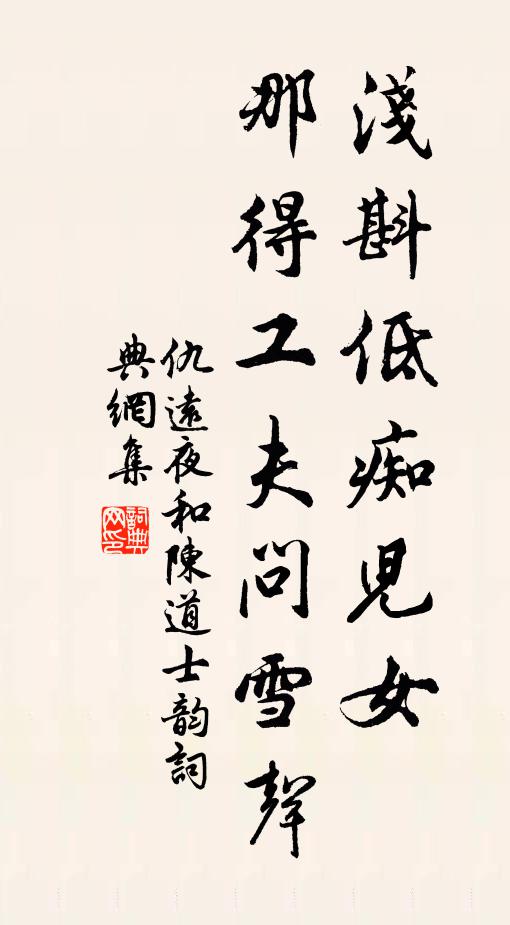 淺斟低痴兒女
那得工夫問雪聲
仇遠夜和陳道士韵詞
典網集
詞典
网印